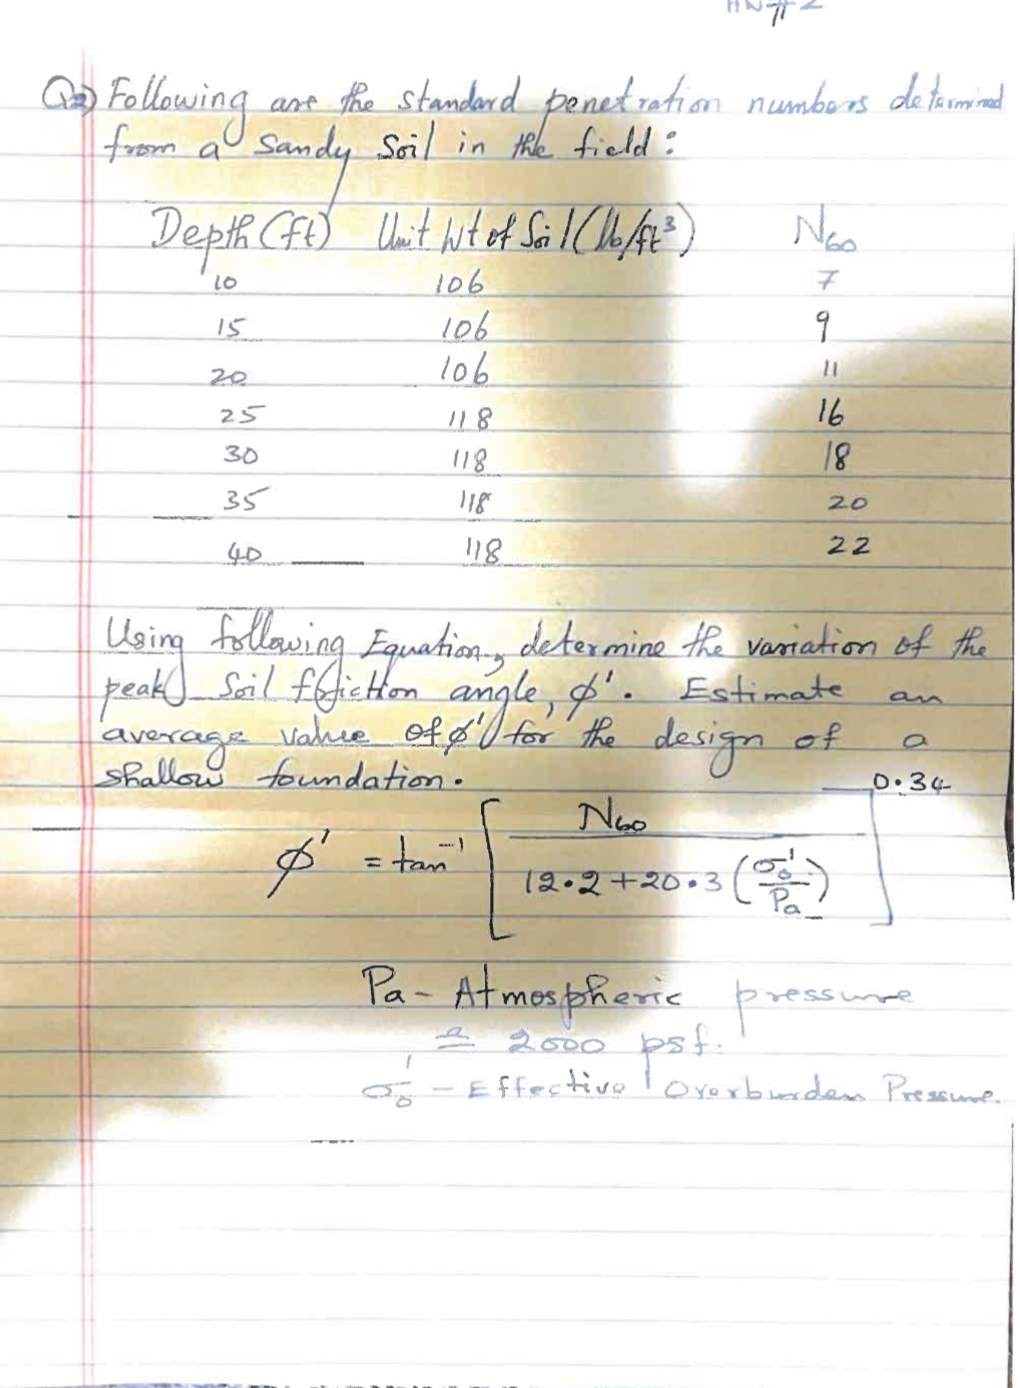 HW#2
Q2) Following are the standard penetration numbers determined
from a Sandy Soil in the field:
Depth (ft) Unit Wt of Soil (lb/ft³) N60
10 106 7
15 106 9
20 106 11
25 118 16
30 118 18
35 118 20
40 118 22
Using following Equation, determine the variation of the
peak Soil friction angle, φ'. Estimate an
average value of φ' for the design of a
shallow foundation.
φ' = tan⁻¹ [ N60 / (12.2 + 20.3 (σo'/Pa)) ]^0.34
Pa - Atmospheric pressure
≅ 2000 psf.
σo' - Effective Overburden Pressure.